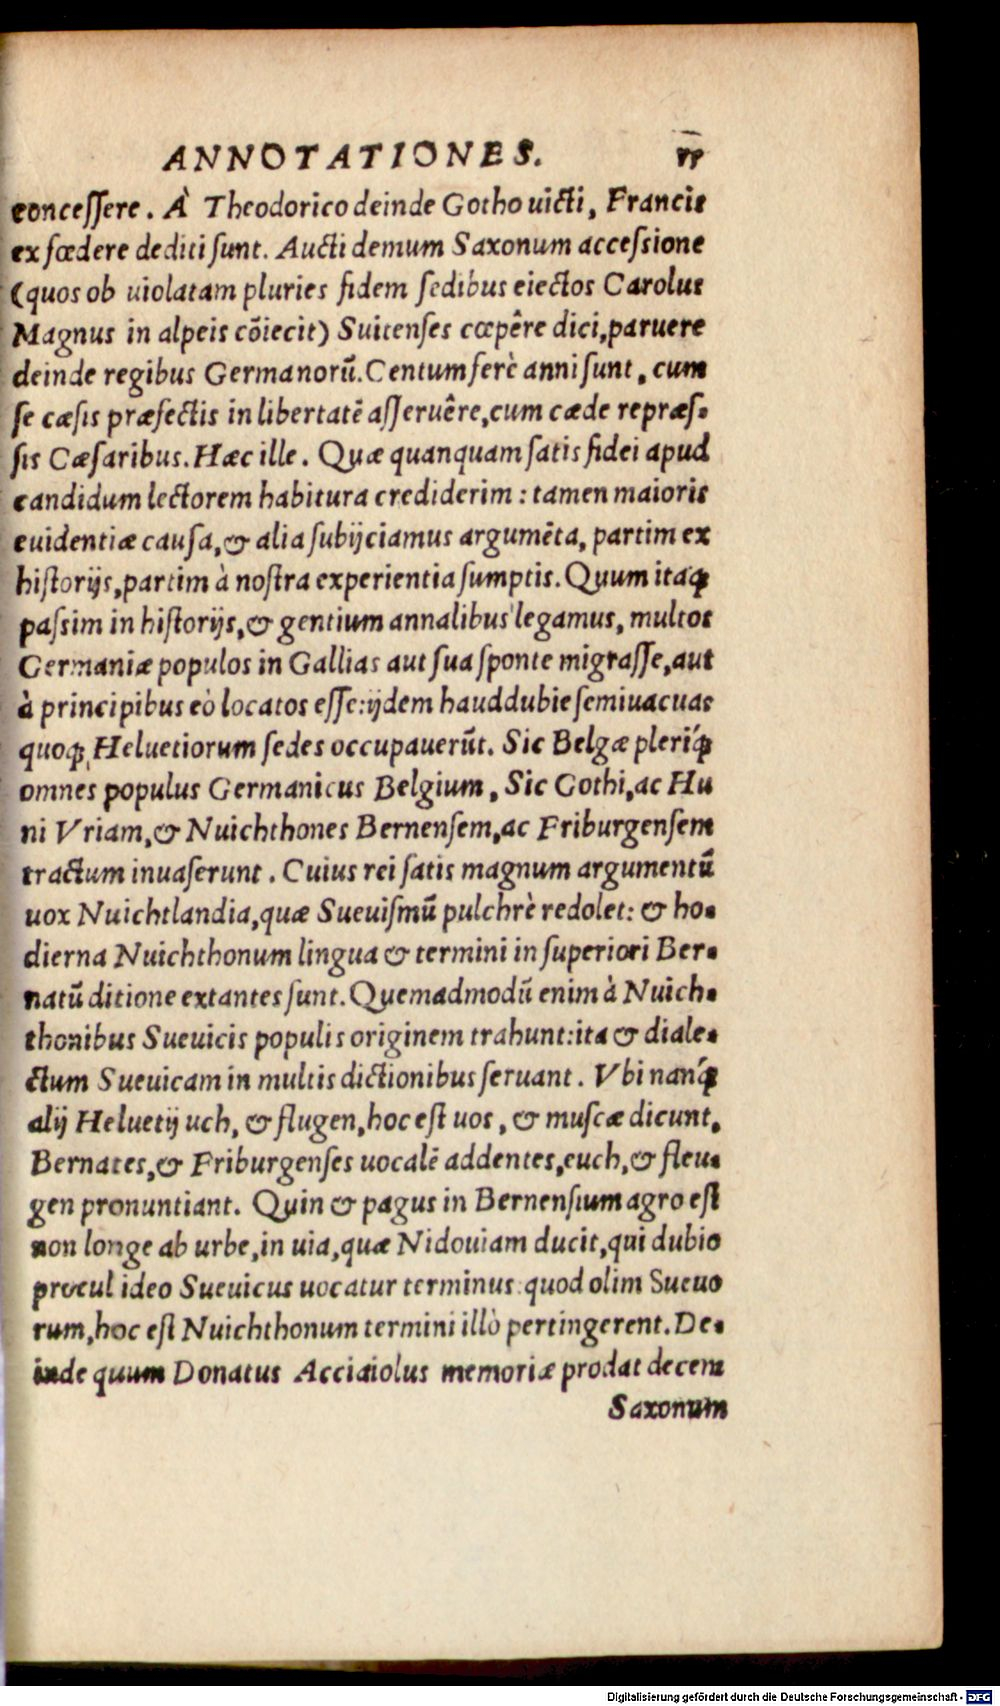 ANNOTATIONES.
concessere. À Theodorico deinde Gotho uicti, Francis
ex fœdere dediti sunt. Aucti demum Saxonum accessione
(quos ob uiolatam pluries fidem sedibus eiectos Carolus
Magnus in alpeis cõiecit) Suitenses cœpêre dici, paruere
deinde regibus Germanorũ. Centum ferè anni sunt, cum
se cæsis præfectis in libertatē asseruêre, cum cæde repræs-
sis Cæsaribus. Hæc ille. Quæ quanquam satis fidei apud
candidum lectorem habitura crediderim: tamen maioris
euidentiæ causa, & alia subijciamus argumēta, partim ex
historijs, partim à nostra experientia sumptis. Quum itaq;
passim in historijs, & gentium annalibus legamus, multos
Germaniæ populos in Gallias aut sua sponte migrasse, aut
à principibus eò locatos esse: ijdem hauddubie semiuacuas
quoq; Heluetiorum sedes occupauerũt. Sic Belgæ pleriq́;
omnes populus Germanicus Belgium, Sic Gothi, ac Hu
ni Vriam, & Nuichthones Bernensem, ac Friburgensem
tractum inuaserunt. Cuius rei satis magnum argumentũ
uox Nuichtlandia, quæ Sueuismũ pulchrè redolet: & ho-
dierna Nuichthonum lingua & termini in superiori Ber-
natũ ditione extantes sunt. Quemadmodũ enim à Nuich-
thonibus Sueuicis populis originem trahunt: ita & diale-
ctum Sueuicam in multis dictionibus seruant. Vbi nanq́;
alij Heluetij uch, & flugen, hoc est uos, & muscæ dicunt,
Bernates, & Friburgenses uocalē addentes, euch, & fleu-
gen pronuntiant. Quin & pagus in Bernensium agro est
non longe ab urbe, in uia, quæ Nidouiam ducit, qui dubio
procul ideo Sueuicus uocatur terminus: quod olim Sueuo
rum, hoc est Nuichthonum termini illò pertingerent. De-
inde quum Donatus Acciaiolus memoriæ prodat decem
Saxonum
Digitalisierung gefördert durch die Deutsche Forschungsgemeinschaft - DFG